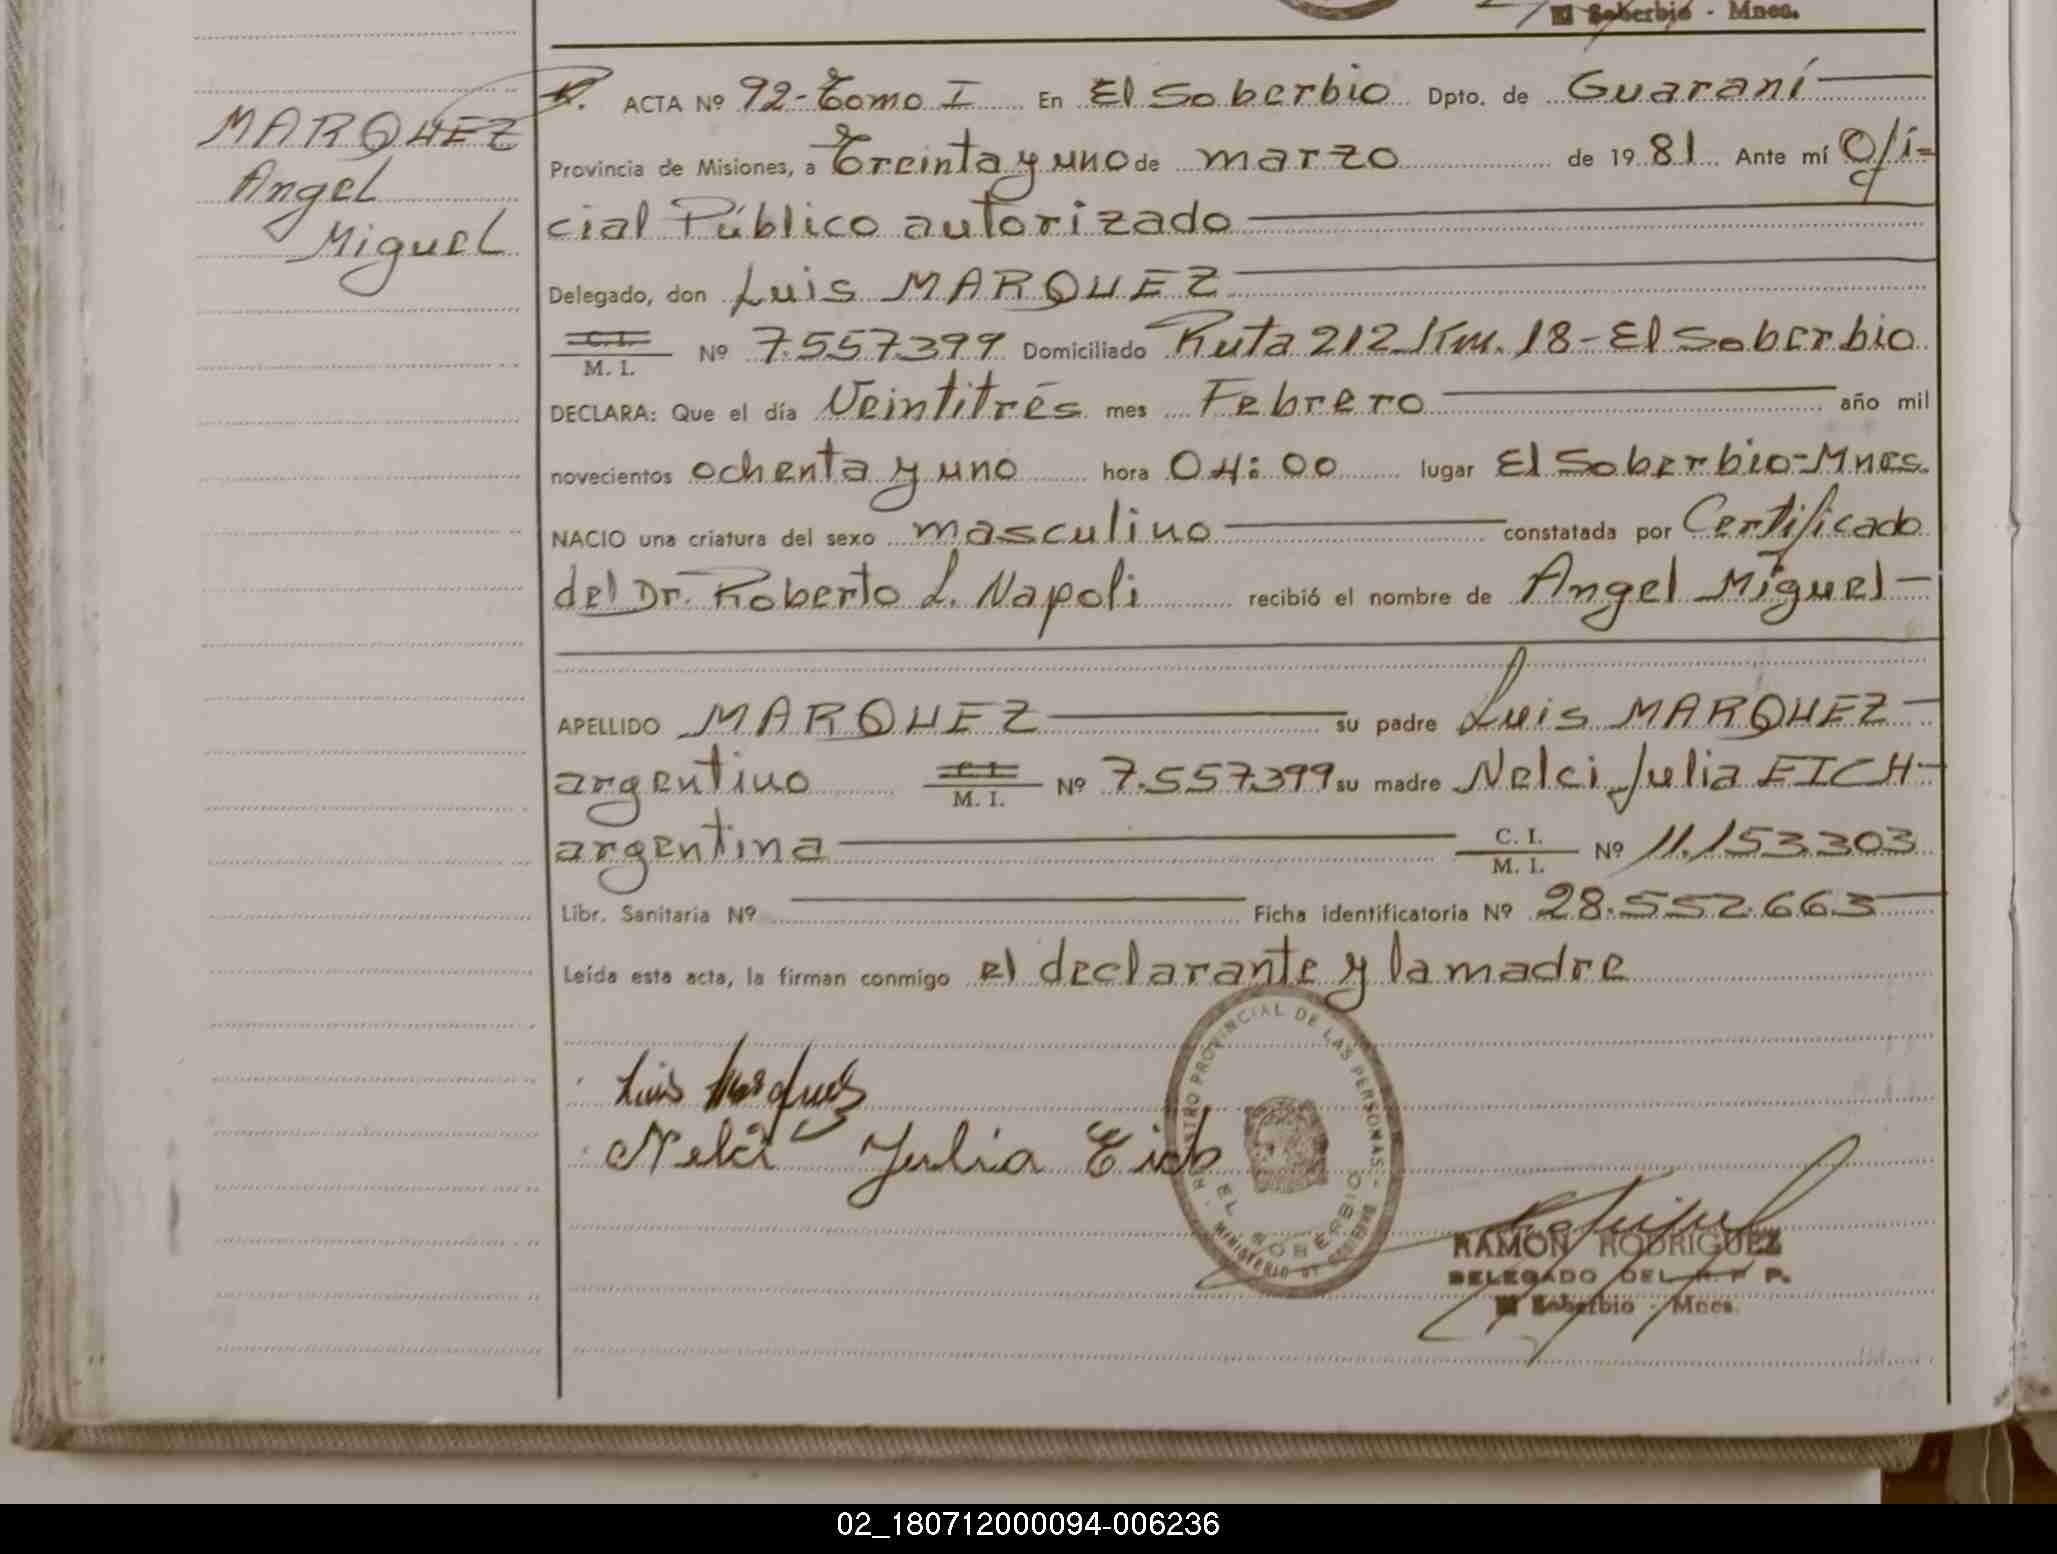 El Soberbio - Mnes.
MARQUEZ
Angel
Miguel
ACTA Nº 92-Tomo I En El Soberbio Dpto. de Guaraní
Provincia de Misiones, a Treinta y uno de marzo de 19 81 Ante mí Ofi=
cial Público autorizado
Delegado, don Luis MARQUEZ
C. I.
M. I. Nº 7.557.399 Domiciliado Ruta 212 Km. 18-El Soberbio
DECLARA: Que el día Veintitrés mes Febrero año mil
novecientos ochenta y uno hora 04:00 lugar El Soberbio-Mnes.
NACIO una criatura del sexo masculino constatada por Certificado
del Dr. Roberto L. Napoli recibió el nombre de Angel Miguel
APELLIDO MARQUEZ su padre Luis MARQUEZ
argentino C. I. M. I. Nº 7.557.399 su madre Nelci Julia EICH
argentina C. I. M. I. Nº 11.153.303
Libr. Sanitaria Nº Ficha identificatoria Nº 28.552.663
Leída esta acta, la firman conmigo el declarante y la madre
Luis Marquez
Nelci Julia Eich
REGISTRO PROVINCIAL DE LAS PERSONAS
EL SOBERBIO
MINISTERIO DE GOBIERNO
RAMON RODRIGUEZ
DELEGADO DEL R. P. P.
El Soberbio - Mnes.
02_180712000094-006236